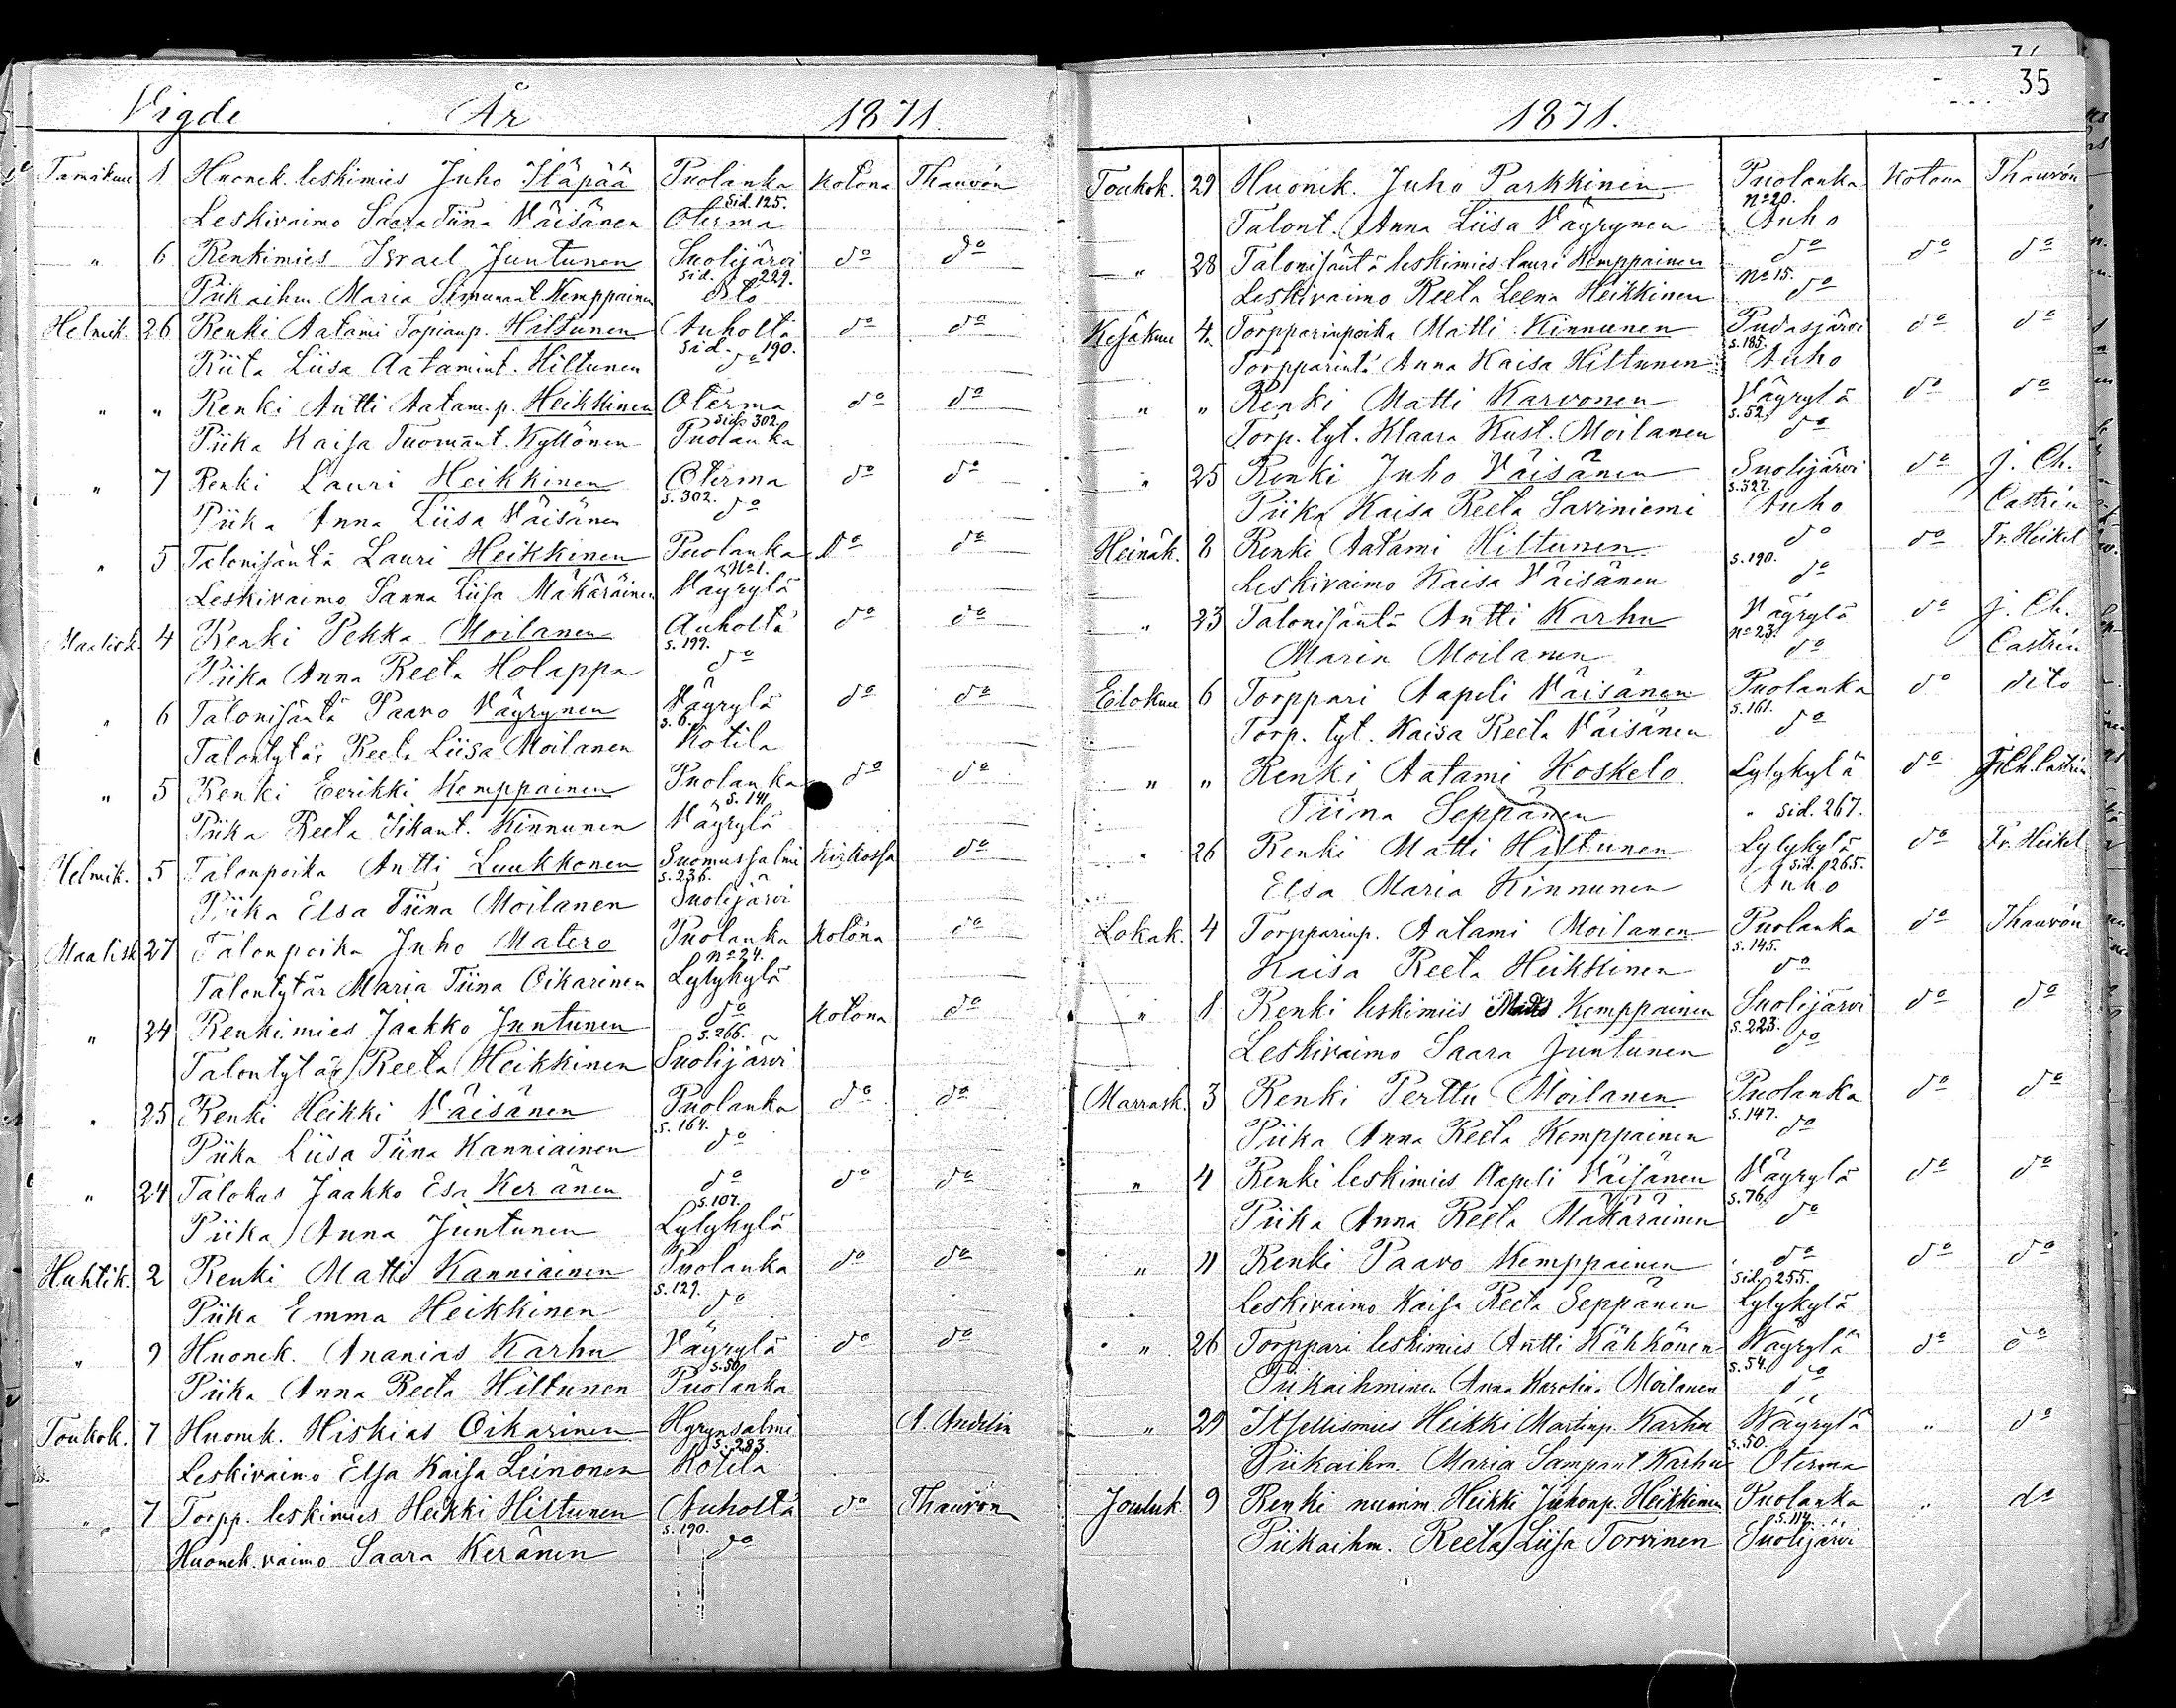 Vigde År 1871
Tamikuu 1 Huonek. leskimies Juho Iläpää Puolanka kotona Thauvón
sid. 125.
Leskivaimo Saara Tiina Väisänen Oterma
" 6 Renkimies Israel Juntunen Suolijärvi do do
sid. 229.
Piikaihm. Maria Simunant. Kemppainen dito
Helmik. 26 Renki Aatami Topianp. Hiltunen Auholta do do
sid. 190.
Riita Liisa Aatamint. Hiltunen do
" " Renki Antti Aatam. p. Heikkinen Oterma do do
sid. 302.
Piika Kaisa Tuomant. Kyllönen Puolanka
" 7 Renki Lauri Heikkinen Oterma do do
s. 302.
Piika Anna Liisa Väisänen do
" 5 Talonisäntä Lauri Heikkinen Puolanka do do
No 1.
Leskivaimo Sanna Liisa Mäkäräinen Väyrylä
Maalisk. 4 Renki Pekka Moilanen Auholta do do
s. 199.
Piika Anna Reeta Holappa do
" 6 Talonisäntä Paavo Väyrynen Väyrylä do do
s. 6.
Talontytär Reeta Liisa Moilanen Kotila
" 5 Renki Eerikki Kemppainen Puolanka do do
s. 141.
Piika Reeta Iikant. Kinnunen Väyrylä
Helmik. 5 Talonpoika Antti Luukkonen Suomussalmi kirkossa do
s. 236.
Piika Elsa Tiina Moilanen Suolijärvi
Maalisk 27 Talonpoika Juho Matero Puolanka kotona do
No 24.
Talontytär Maria Tiina Oikarinen Lylykylä
" 24 Renkimies Jaakko Juntunen do kotona do
s. 266.
Talontytär Reeta Heikkinen Suolijärvi
" 25 Renki Heikki Väisänen Puolanka do do
s. 164.
Piika Liisa Tiina Kanniainen do
" 24 Talokas Jaakko Esa Keränen do do do
s. 107.
Piika Anna Juntunen Lylykylä
Huhtik. 2 Renki Matti Kanniainen Puolanka do do
s. 129.
Piika Emma Heikkinen do
" 9 Huonek. Ananias Karhu Väyrylä do do
s. 50.
Piika Anna Reeta Hiltunen Puolanka
Toukok. 7 Huonek. Hiskias Oikarinen Hyrynsalmi A. Andelin
s. 283.
Leskivaimo Elsa Kaisa Leinonen Kotila
" 7 Torpp. leskimies Heikki Hiltunen Auholta do Thauvón
s. 190.
Huonek. vaimo Saara Keränen do
35
1871.
Toukok. 29 Huonek. Juho Parkkinen Puolanka kotona Thauvón
No 20.
Talont. Anna Liisa Väyrynen Auho
" 28 Talonisäntä leskimies Lauri Kemppainen do do do
No 15.
Leskivaimo Reeta Leena Heikkinen do
Kesäkuu 4 Torpparinpoika Matti Kinnunen Pudasjärvi do do
s. 185.
Torpparint. Anna Kaisa Hiltunen Auho
" " Renki Matti Karvonen Väyrylä do do
s. 52.
Torp. tyt. Klaara Kust. Moilanen do
" 25 Renki Juho Väisänen Suolijärvi do J. Ch.
s. 327.
Piika Kaisa Reeta Saviniemi Auho Castrén
Heinäk. 8 Renki Aatami Hiltunen do do Fr. Heikel
s. 190.
Leskivaimo Kaisa Väisänen do
" 23 Talonisäntä Antti Karhu Väyrylä do J. Ch.
No 23.
Maria Moilanen do Castrén
Elokuu 6 Torppari Aapeli Väisänen Puolanka do dito
s. 161.
Torp. tyt. Kaisa Reeta Väisänen do
" " Renki Aatami Koskelo Lylykylä do J. Ch. Castrén
Tiina Seppänen " sid. 267.
" 26 Renki Matti Hiltunen Lylykylä do Fr. Heikel
sid. 265.
Elsa Maria Kinnunen Auho
Lokak. 4 Torpparinp. Aatami Moilanen Puolanka do Thauvón
s. 145.
Kaisa Reeta Heikkinen do
" 1 Renki leskimies Kemppainen Suolijärvi do do
s. 223.
Leskivaimo Saara Juntunen do
Marrask. 3 Renki Perttu Moilanen Puolanka do do
s. 147.
Piika Anna Reeta Kemppainen do
" 4 Renki leskimies Aapeli Väisänen Väyrylä do do
s. 76.
Piika Anna Reeta Mäkäräinen do
" 11 Renki Paavo Kemppainen do do do
sid. 255.
Leskivaimo Kaisa Reeta Seppänen Lylykylä
" 26 Torppari leskimies Antti Kähkönen Wäyrylä do do
s. 54.
Piikaihminen Anna Karolina Moilanen do
" 29 Itsellismies Heikki Martinp. Karhu Wäyrylä " do
s. 50.
Piikaihm. Maria Sampant. Karhu Oterma
Jouluk. 9 Renki nuorim. Heikki Juhonp. Heikkinen Puolanka " do
s. 114.
Piikaihm. Reeta Liisa Torvinen Suolijärvi